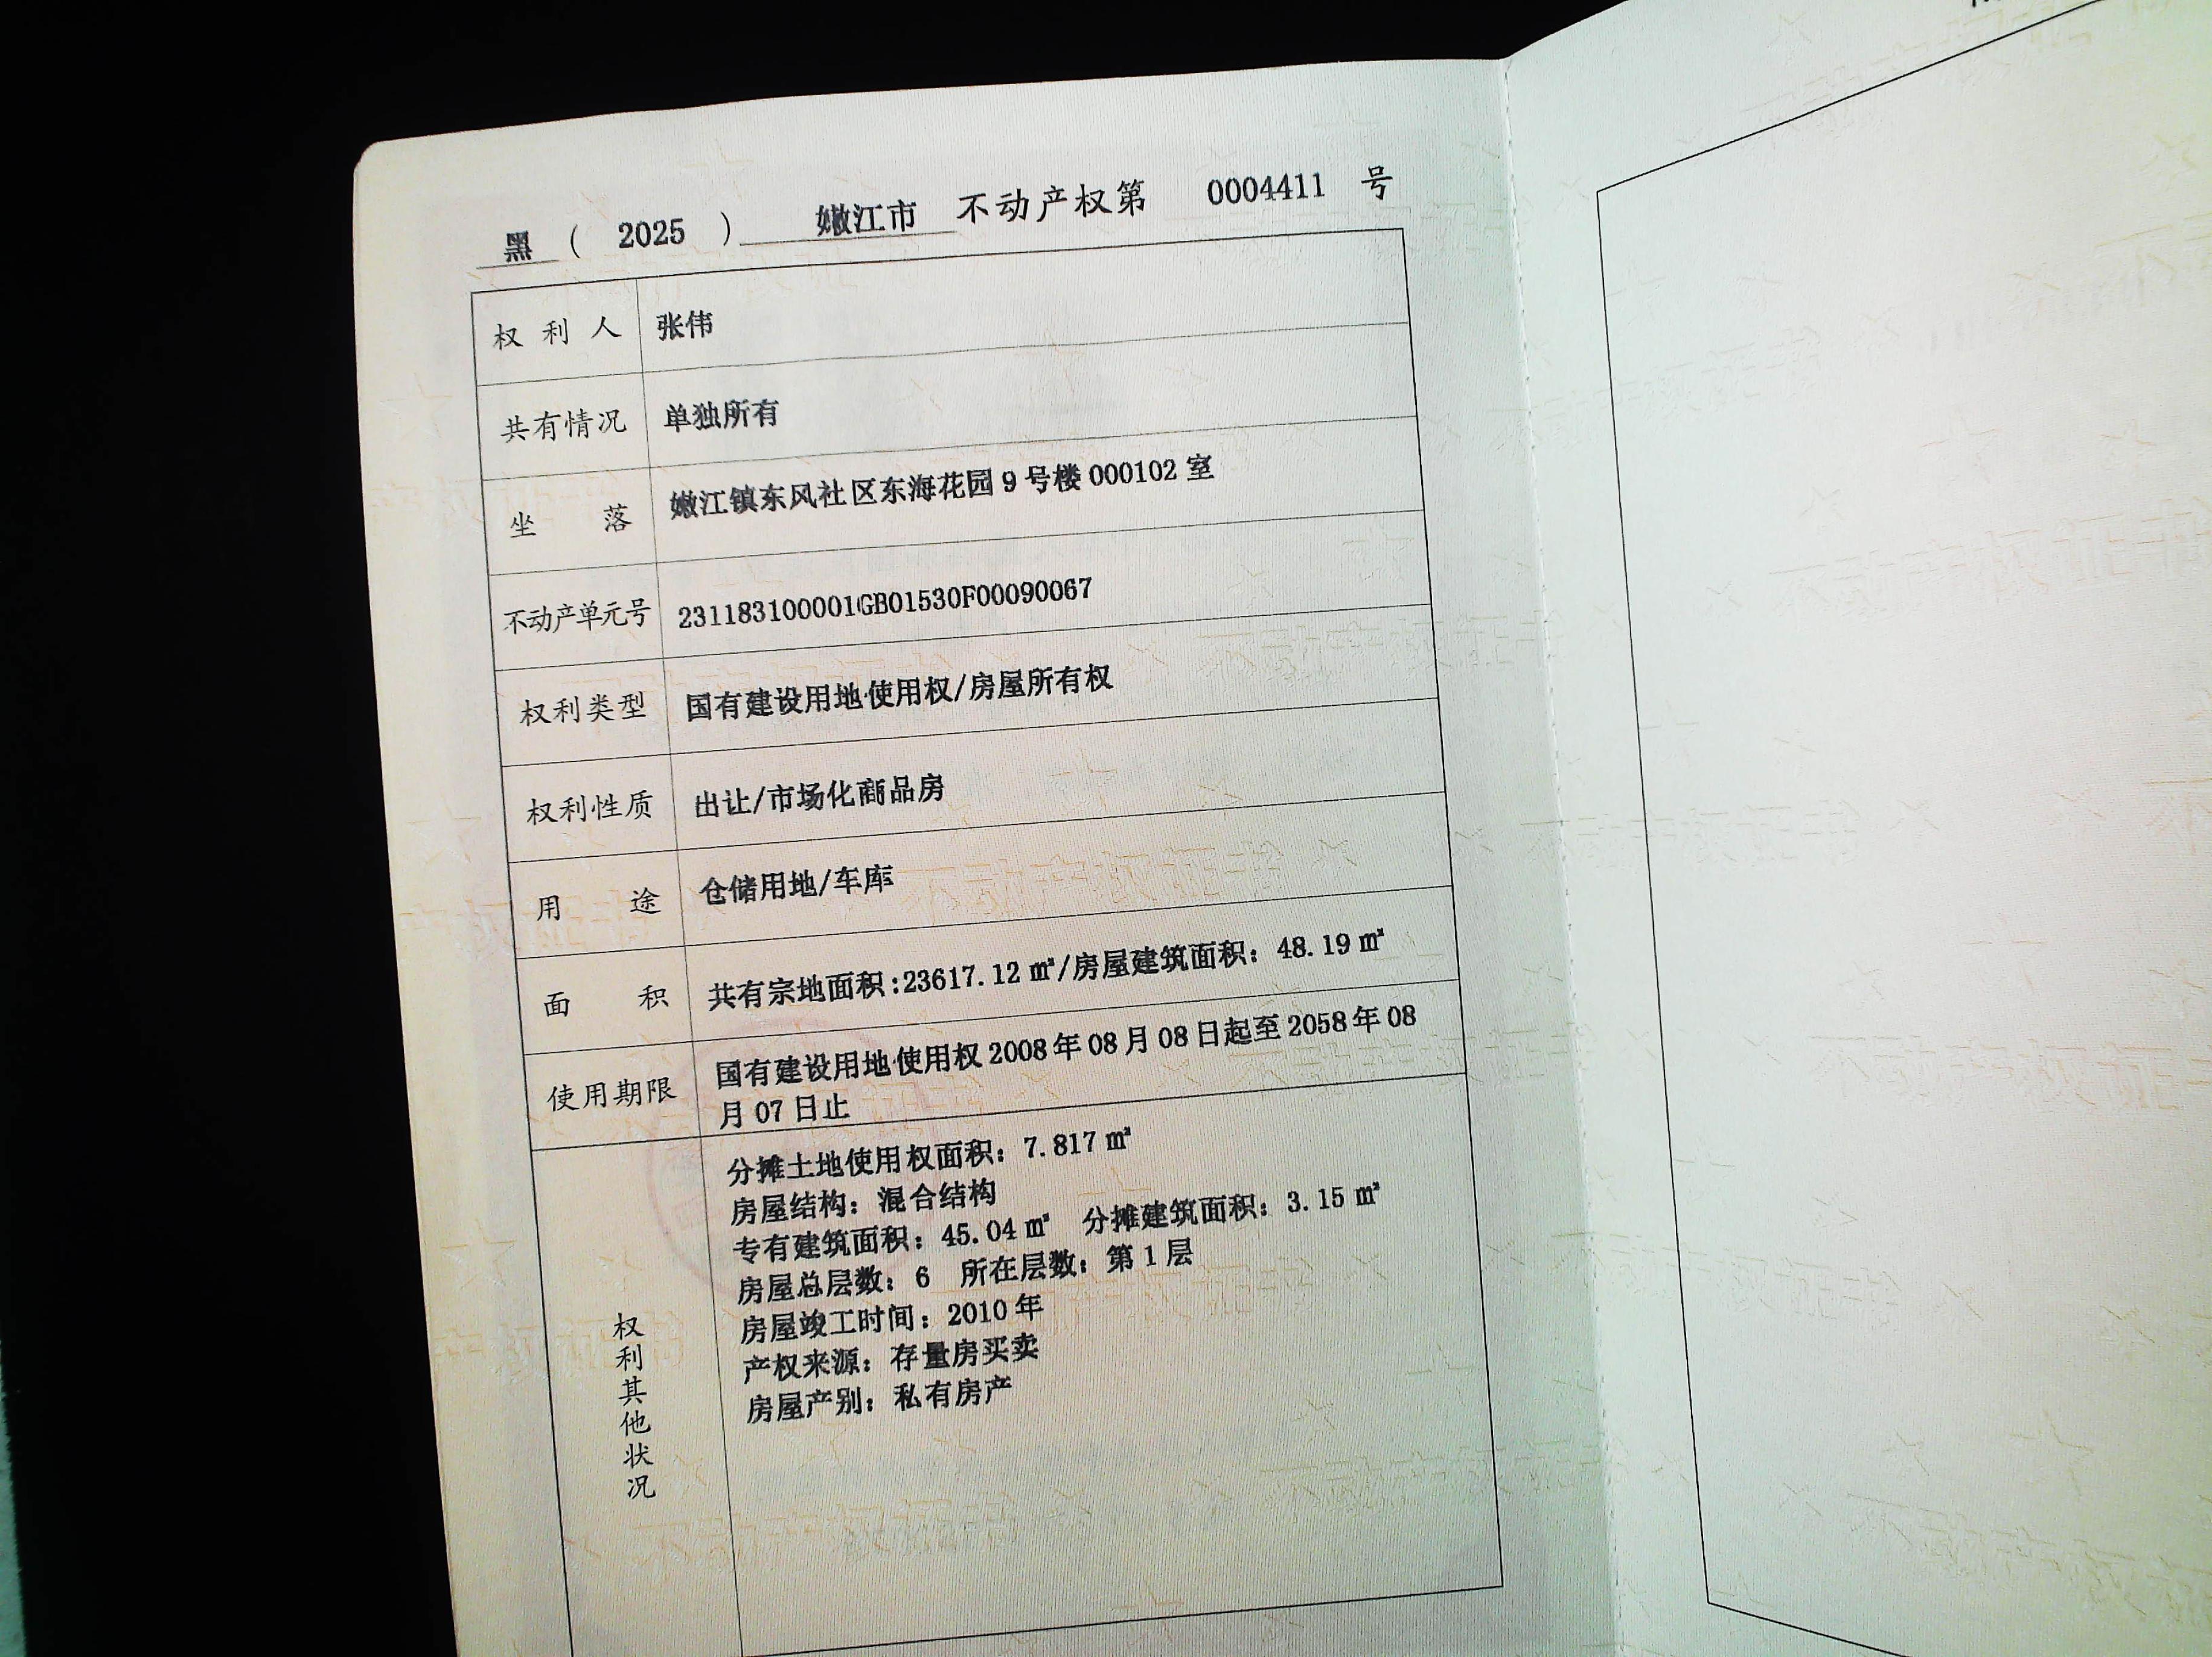 黑 ( 2025 ) 嫩江市 不动产权第 0004411 号
权利人 张伟
共有情况 单独所有
坐落 嫩江镇东风社区东海花园9号楼000102室
不动产单元号 231183100001GB01530F00090067
权利类型 国有建设用地使用权/房屋所有权
权利性质 出让/市场化商品房
用途 仓储用地/车库
面积 共有宗地面积:23617.12㎡/房屋建筑面积：48.19㎡
使用期限 国有建设用地使用权2008年08月08日起至2058年08
月07日止
权利其他状况
分摊土地使用权面积：7.817㎡
房屋结构：混合结构
专有建筑面积：45.04㎡ 分摊建筑面积：3.15㎡
房屋总层数：6 所在层数：第1层
房屋竣工时间：2010年
产权来源：存量房买卖
房屋产别：私有房产